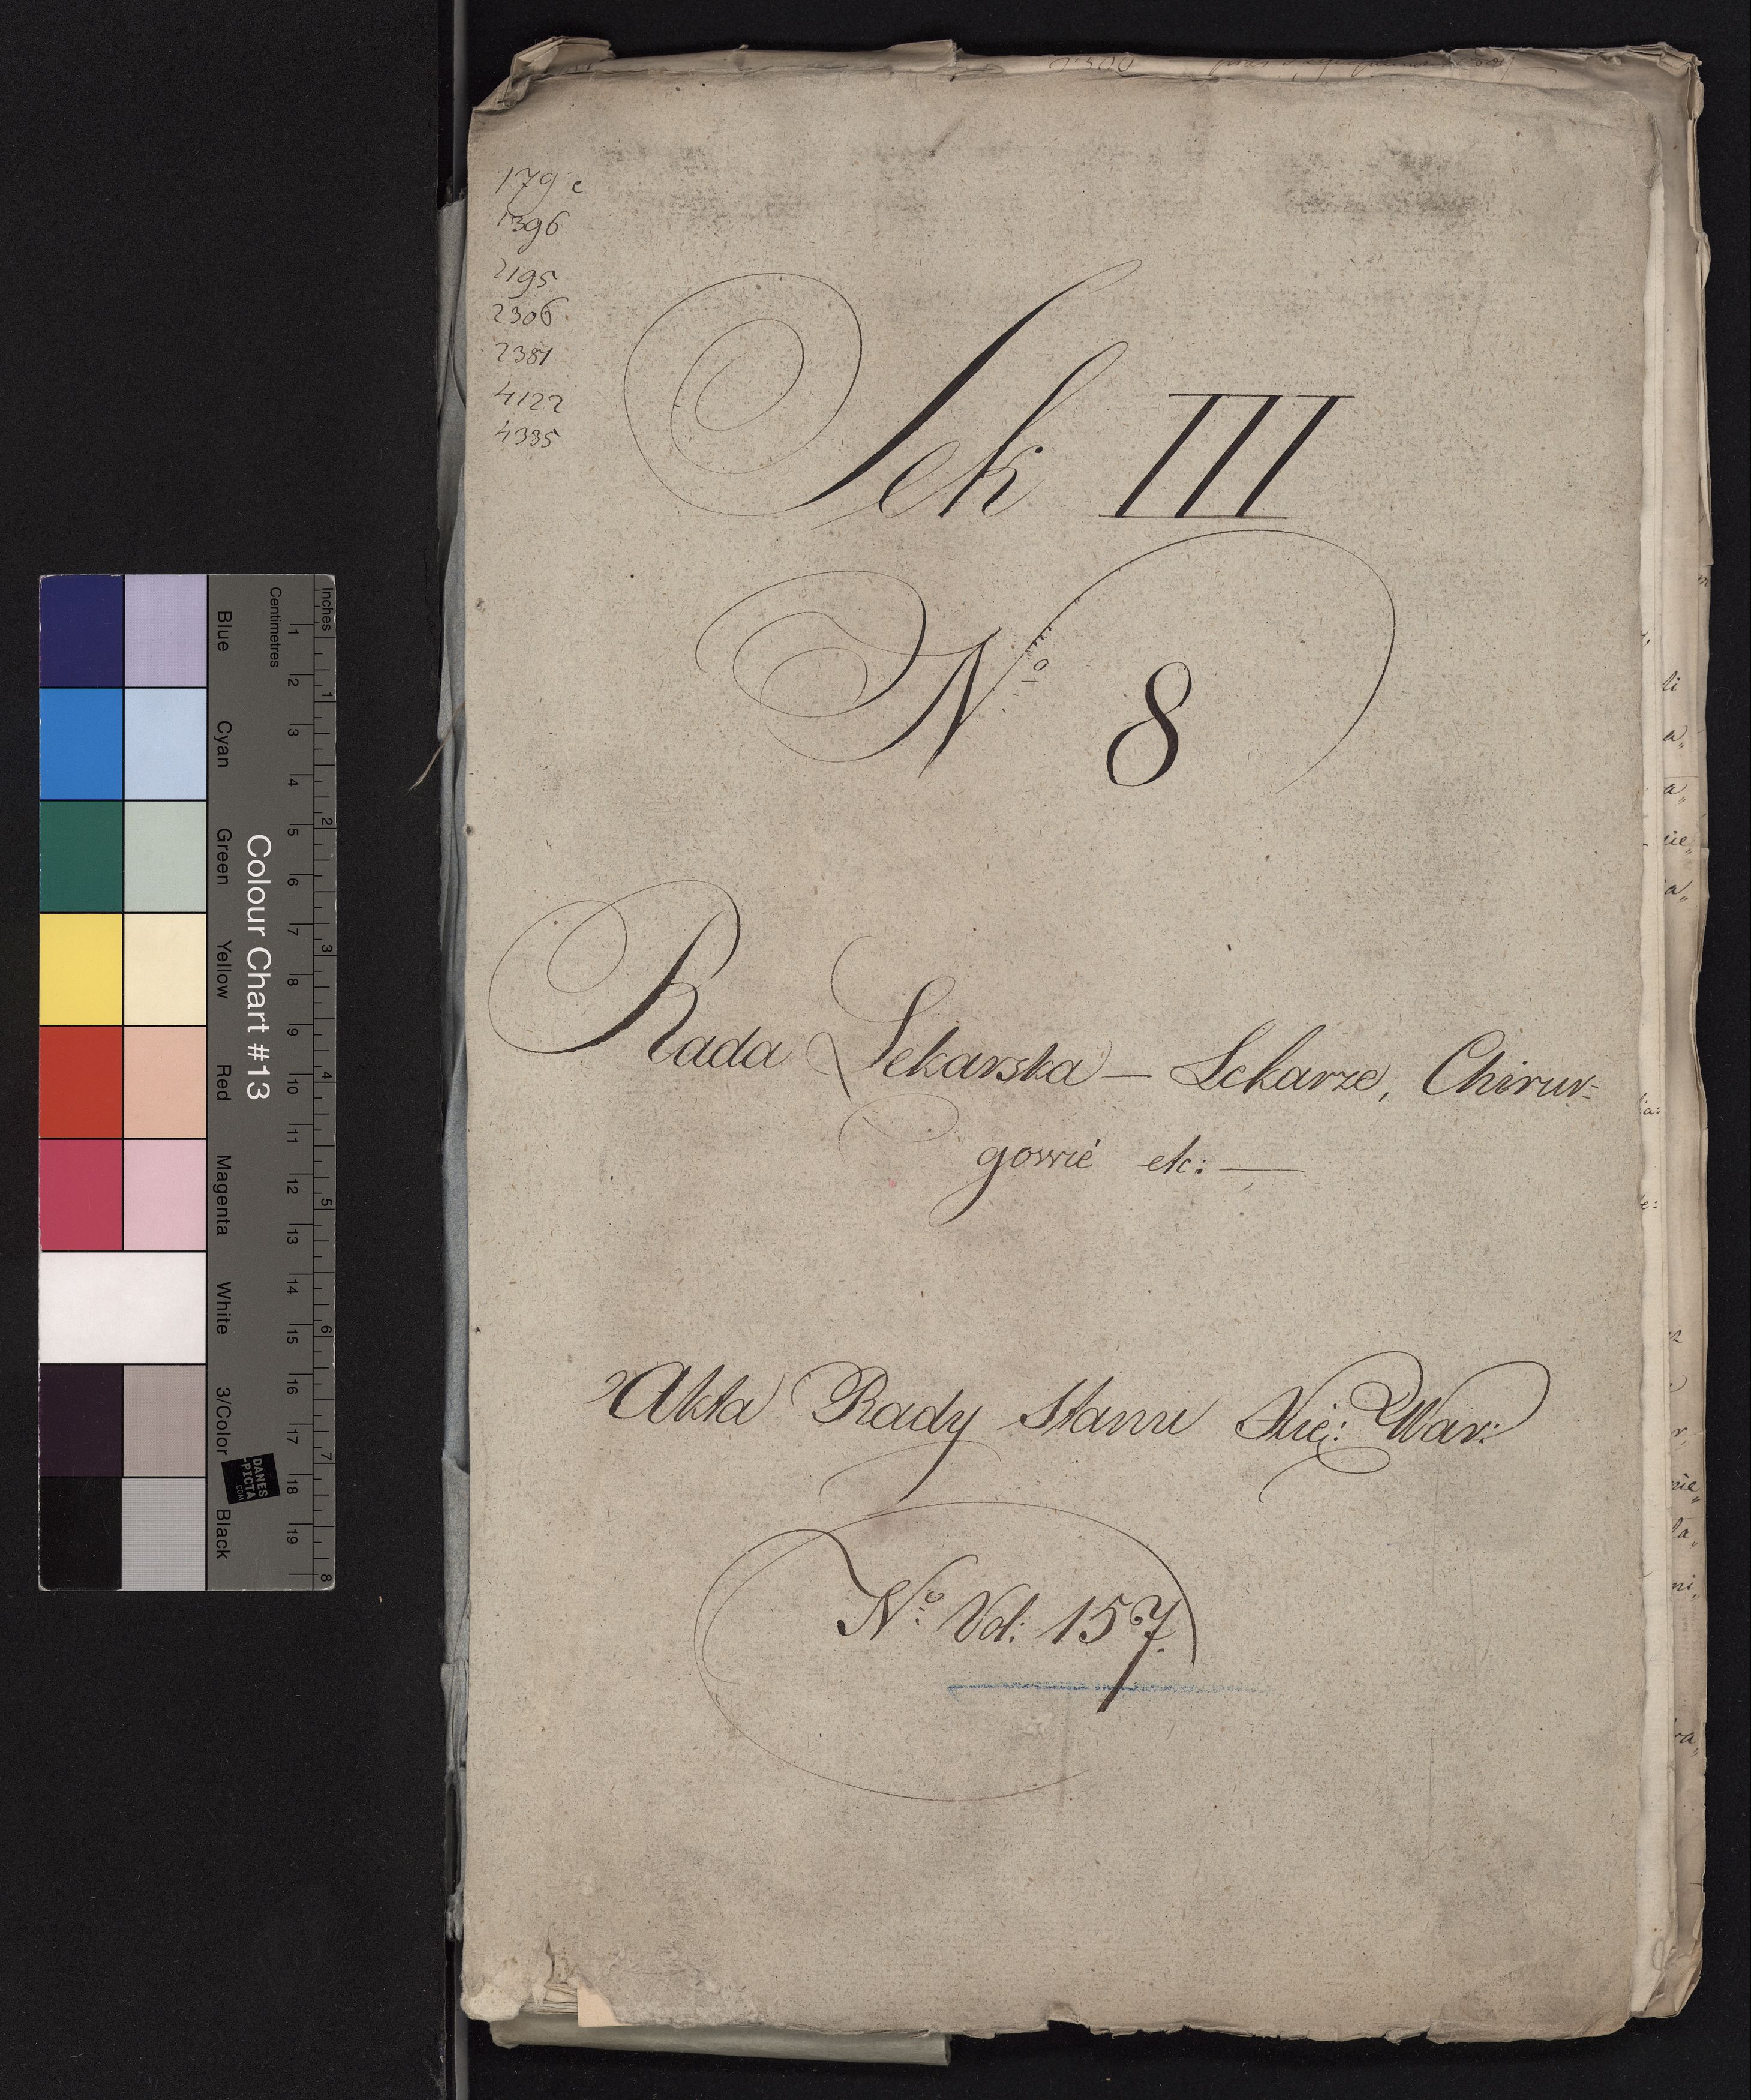 179 c
1396
2195
2306
2381
4122
4335
Sek III
No 8
Rada Lekarska — Lekarze, Chirur=
gowie etc: —
Akta Rady Stanu Xię: War:
No Vol: 157.
Colour Chart #13
Blue
Cyan
Green
Yellow
Red
Magenta
White
3/Color
Black
Inches
Centimetres
1 2 3 4 5 6 7 8 9 10 11 12 13 14 15 16 17 18 19
1 2 3 4 5 6 7 8
DANES
-PICTA
.COM